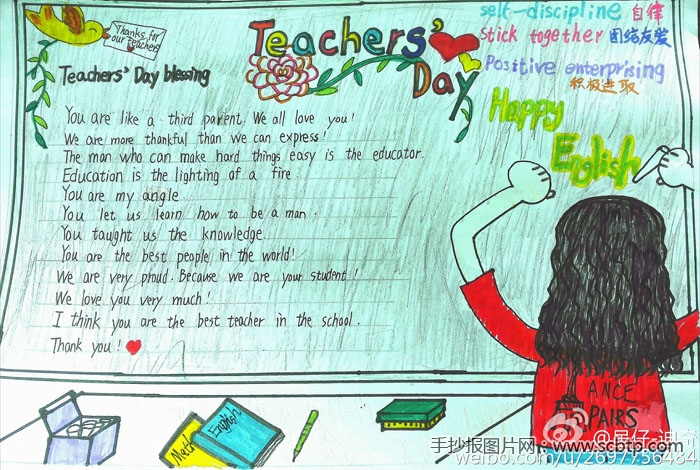 Thanks for
our teachers
Teachers' Day
self-discipline 自律
Stick together 团结友爱
Positive enterprising
积极进取
Happy
English
Teachers' Day blessing
You are like a third parent. We all love you!
We are more thankful than we can express!
The man who can make hard things easy is the educator.
Education is the lighting of a fire.
You are my angle.
You let us learn how to be a man.
You taught us the knowledge
You are the best people in the world!
We are very proud. Because we are your student!
We love you very much!
I think you are the best teacher in the school.
Thank you!
ANCE
PAIRS
Math
English
手抄报图片网
www.scbtp.com